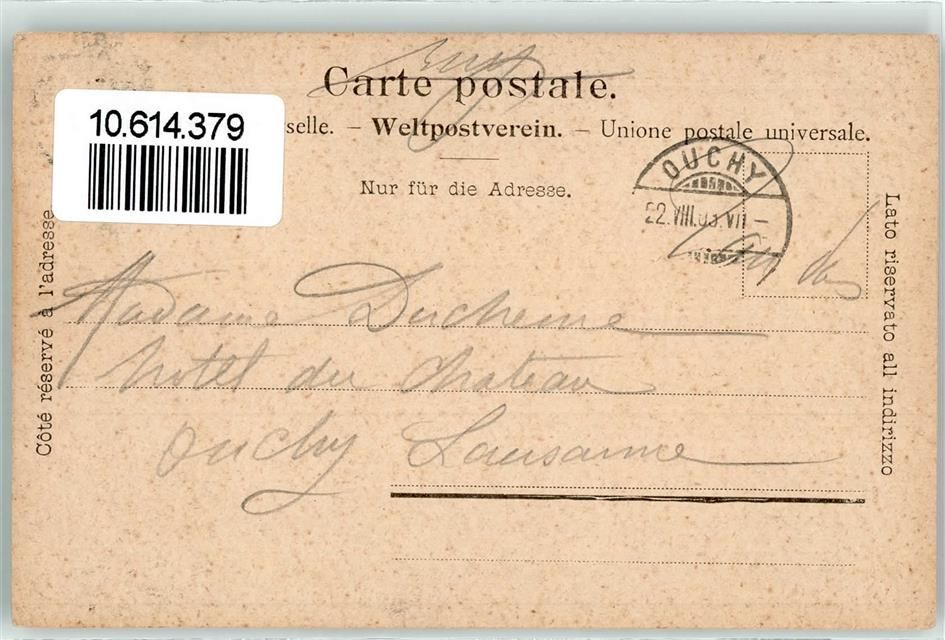 Carte postale.
10.614.379
selle. – Weltpostverein. – Unione postale universale.
Nur für die Adresse.
OUCHY
22.VIII.03.VII –
Côté réservé à l'adresse
Lato riservato all indirizzo
Madame Ducheme
hotel du Chateau
Ouchy Lausanne